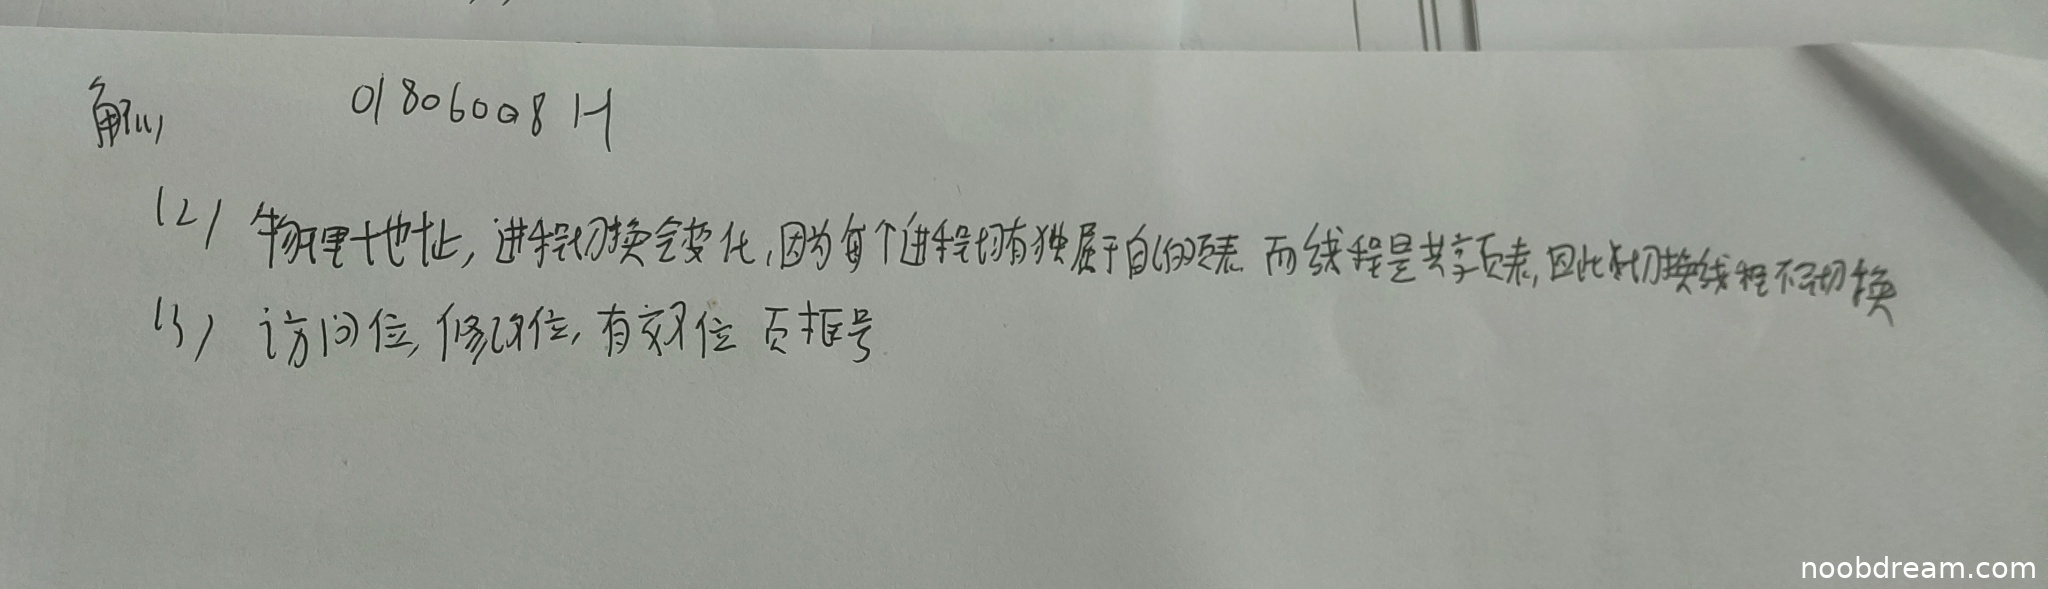 解(1) 01806008H
(2) 物理地址,进程切换会变化,因为每个进程均有独属于自己的页表 而线程是共享页表,因此切换线程不切换
(3) 访问位,修改位,有效位 页框号
noobdream.com